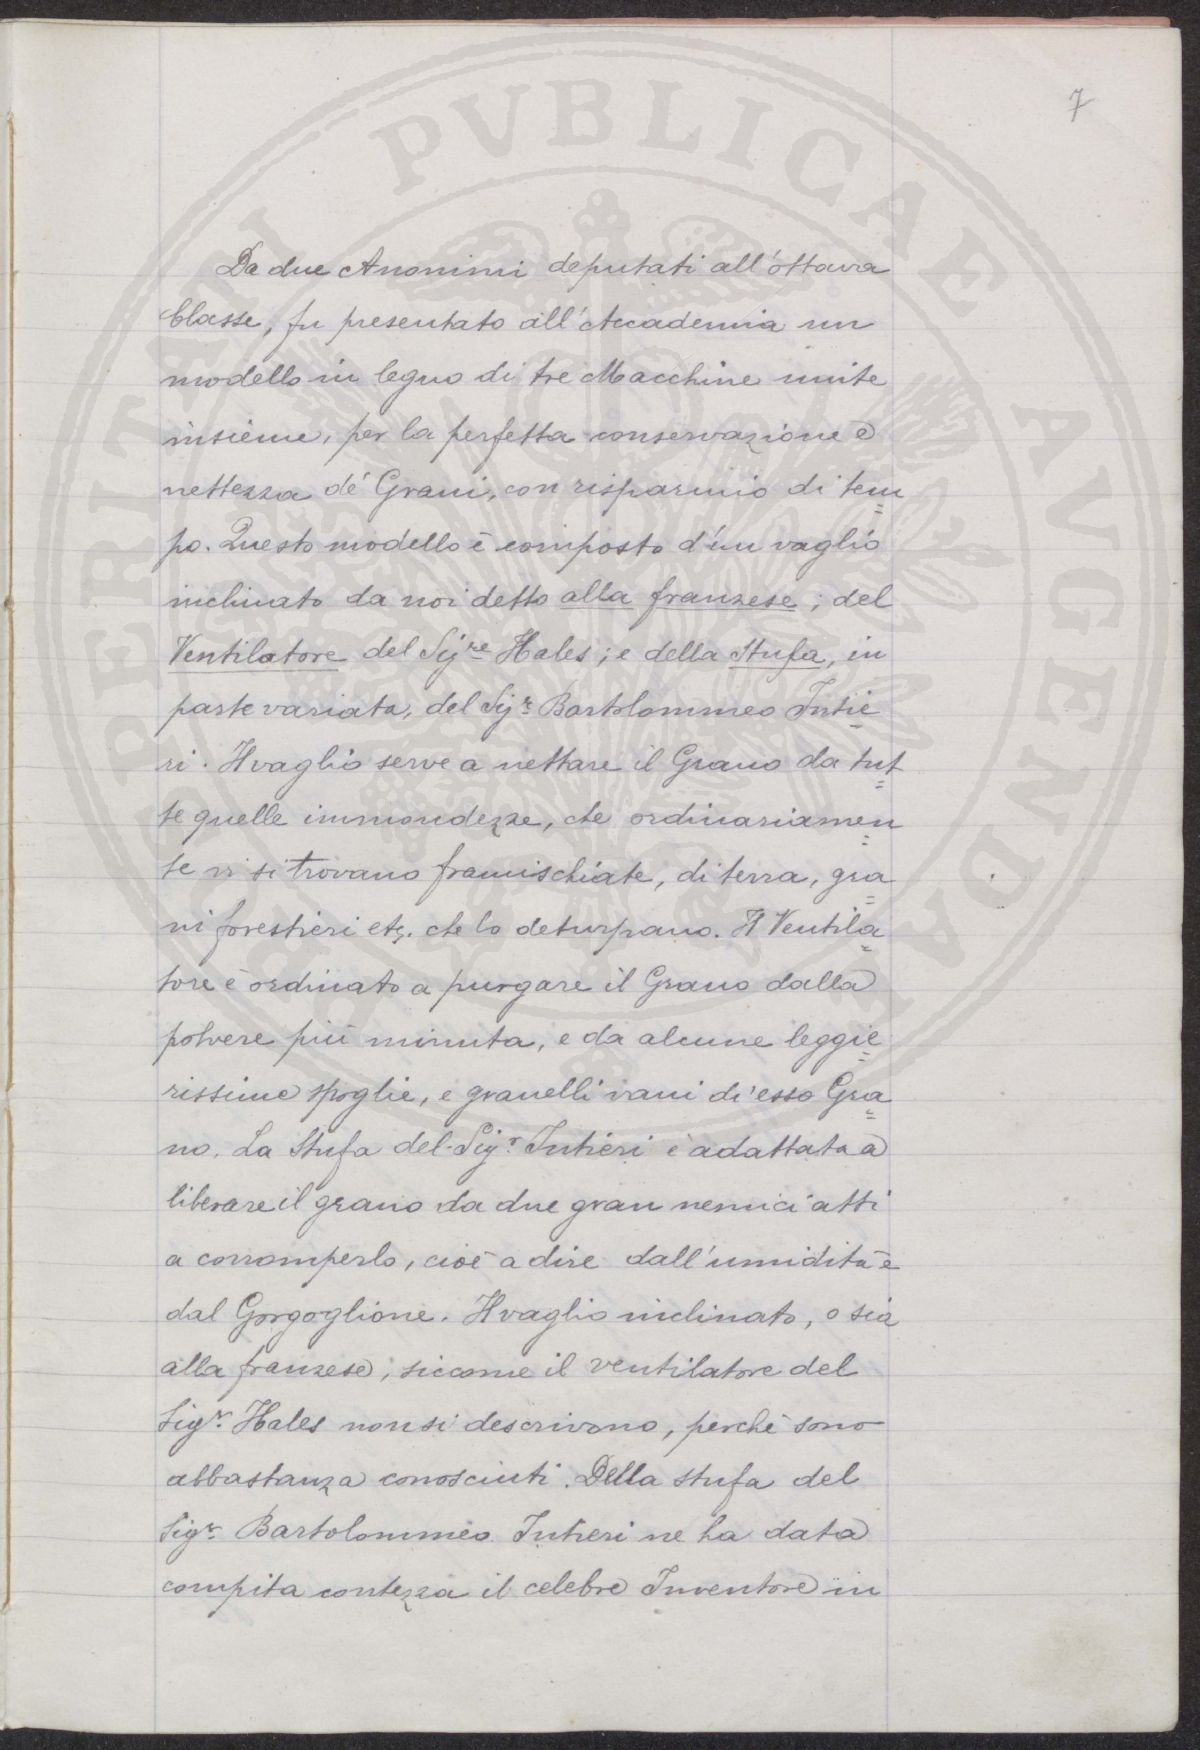 7
Da due Anonimi deputati all'ottava
Classe, fu presentato all'Accademia un
modello in legno di tre Macchine unite
insieme, per la perfetta conservazione e
nettezza de' Grani, con risparmio di tem=
po. Questo modello è composto d'un vaglio
inclinato da noi detto alla franzese; del
Ventilatore del Sigre Hales; e della Stufa, in
parte variata, del Sigr Bartolommeo Intie=
ri. Il vaglio serve a nettare il Grano da tut=
te quelle immondezze, che ordinariamen=
te vi si trovano framischiate, di terra, gra=
ni forestieri etc. che lo deturpano. Il Ventila=
tore è ordinato a purgare il Grano dalla
polvere più minuta, e da alcune leggie=
rissime spoglie, e granelli vani di esso Gra=
no. La Stufa del Sigr Intieri è adattata a
liberare il grano da due gran nemici atti
a corromperlo, cioè a dire dall'umidità e
dal Gorgoglione. Il vaglio inclinato, o sia
alla franzese, siccome il ventilatore del
Sigr. Hales non si descrivono, perchè sono
abbastanza conosciuti. Della stufa del
Sigr. Bartolommeo Intieri ne ha data
compita contezza il celebre Inventore in
PROSPERITATI PVBLICAE AVGENDAE